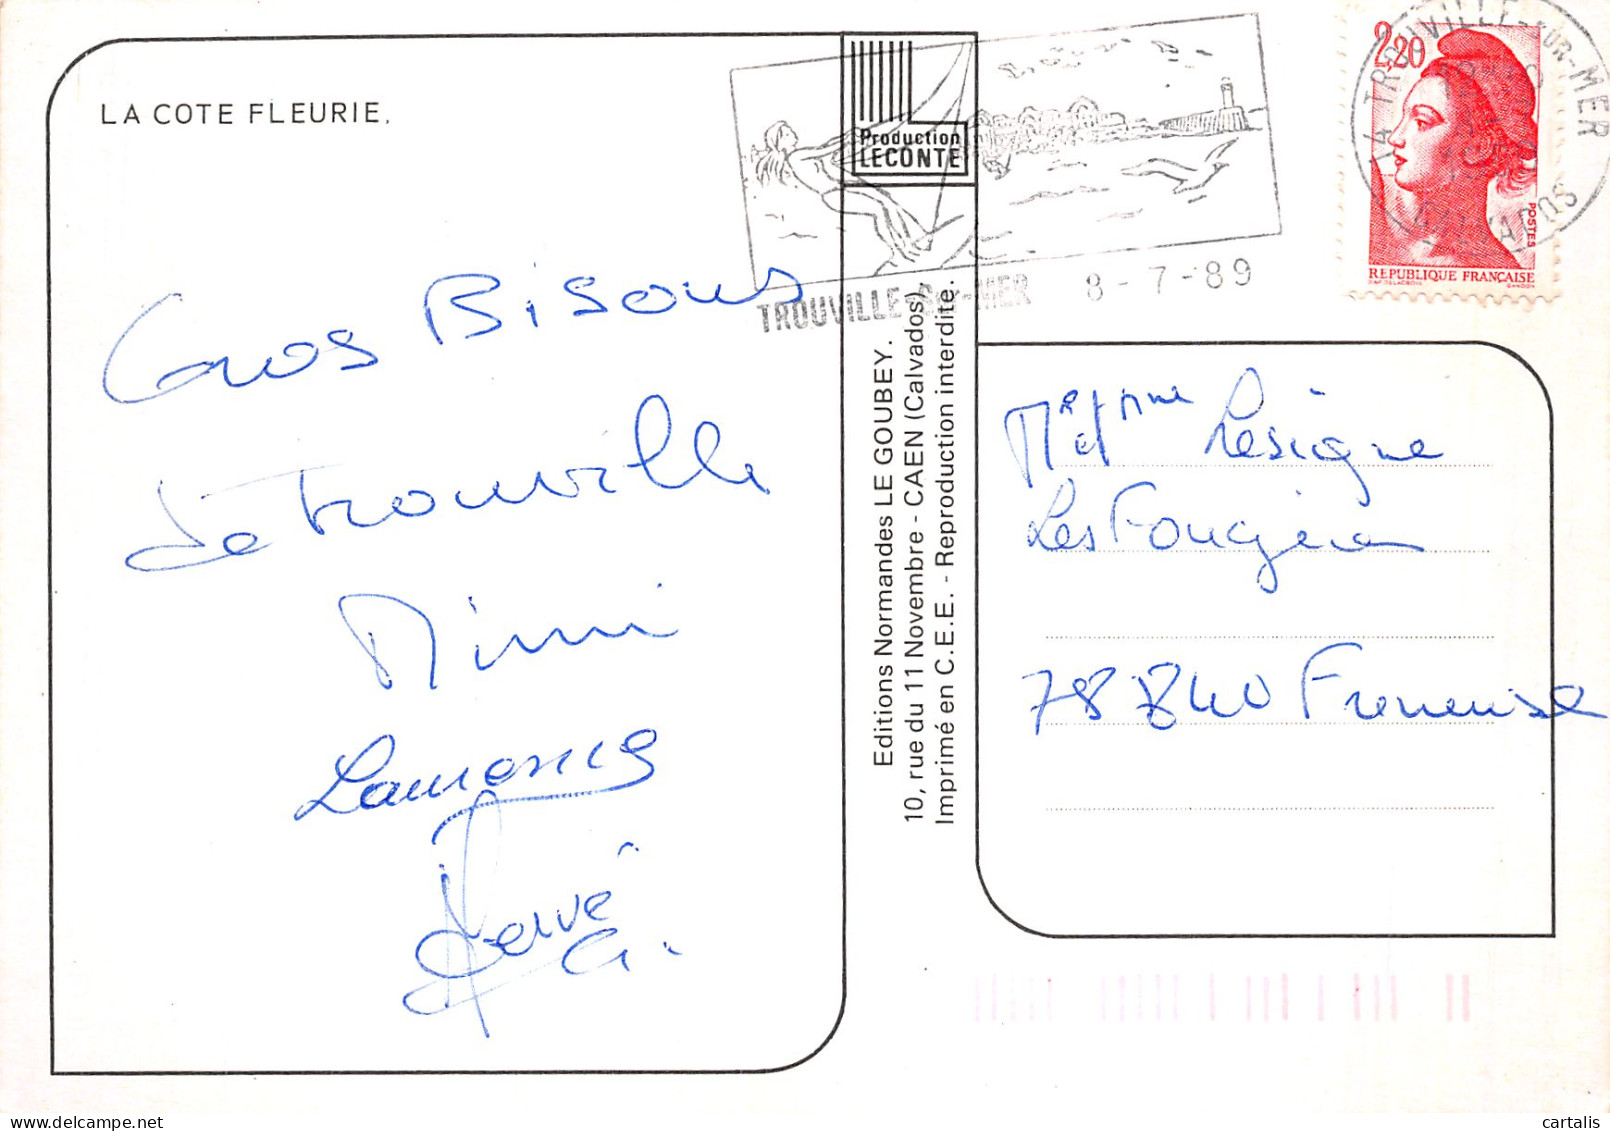 LA COTE FLEURIE.
Gros Bisous
de Trouville
Mimi
Laurence
Hervé
G.
Production
LECONTE
TROUVILLE-SUR-MER 8-7-89
Editions Normandes LE GOUBEY.
10, rue du 11 Novembre - CAEN (Calvados).
Imprimé en C.E.E. - Reproduction interdite.
2,20
POSTES
REPUBLIQUE FRANÇAISE
D'AP. DELACROIX GANDON
14 TROUVILLE-SUR-MER
CALVADOS
Mr et Mme Lesigne
Les Fougères
78840 Freneuse
cartalis